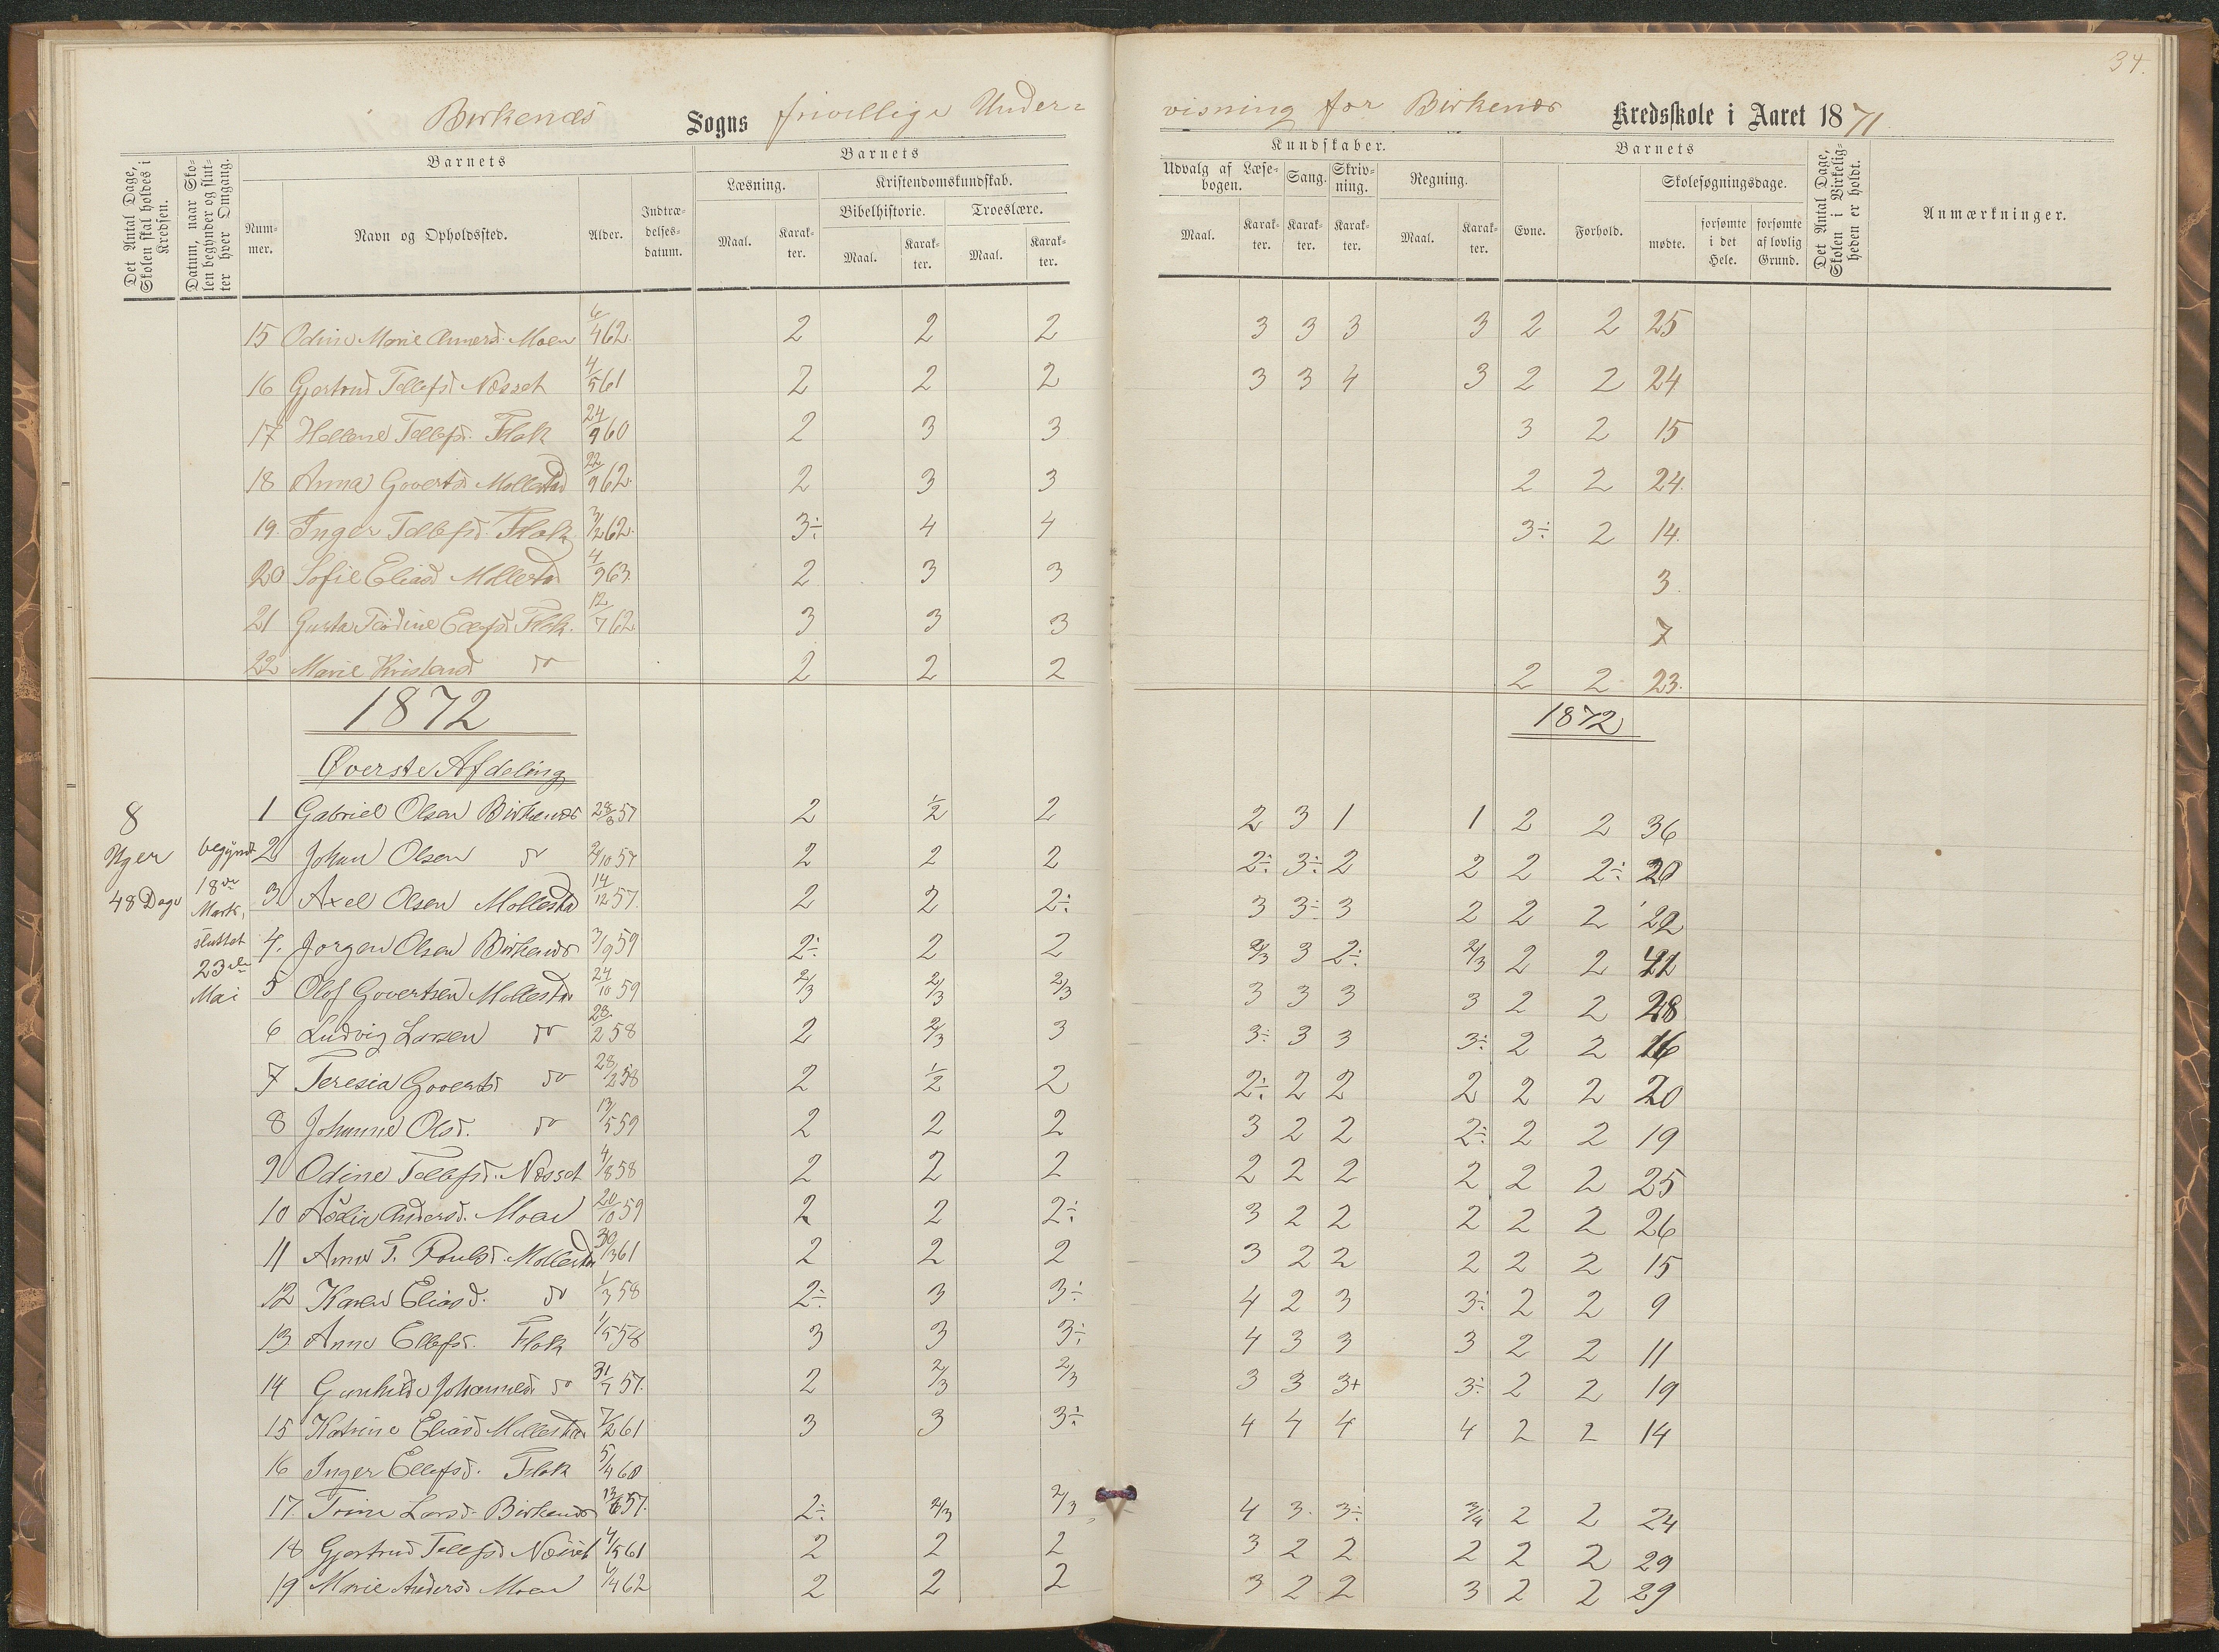 34.
Birkenæs Sogns frivillige Under= visning for Birkenæs Kredsskole i Aaret 1871.
Det Antal Dage, Skolen skal holdes i Kredsen.
Datum, naar Skolen begynder og slutter hver Omgang.
Barnets
Nummer.
Navn og Opholdssted.
Alder.
Indtrædelsesdatum.
Barnets
Læsning.
Maal.
Karakter.
Kristendomskundskab.
Bibelhistorie.
Maal.
Karakter.
Troeslære.
Maal.
Karakter.
Kundskaber.
Udvalg af Læsebogen.
Maal.
Karakter.
Sang.
Karakter.
Skrivning.
Karakter.
Regning.
Maal.
Karakter.
Barnets
Evne.
Forhold.
Skolesøgningsdage.
mødte.
forsømte i det Hele.
forsømte af lovlig Grund.
Det Antal Dage, Skolen i Virkeligheden er holdt.
Anmærkninger.
15 Odine Marie Anersd. Moen 6/4 62. 2 2 2 3 3 3 3 2 2 25
16 Gjertrud Tellefsd. Næsset 4/5 61 2 2 2 3 3 4 3 2 2 24
17 Hellene Tellefsd. Flak 24/9 60 2 3 3 3 2 15
18 Anna Govertsd. Mollestad 22/9 62. 2 3 3 2 2 24.
19. Inger Tellefsd. Flak 3/12 62. 3÷ 4 4 3÷ 2 14.
20 Sofie Eliasd. Mollestad 4/9 63. 2 3 3 3.
21 Gusta Todine Ellefsd. Flak. 12/7 62. 3 3 3 7
22 Marie Kristensd. do 2 2 2 2 2 23.
1872 1872
Øverste Afdeling
8 Uger 48 Dage
begyndt 18de Marts, sluttet 23de Mai
1 Gabriel Olsen Birkenæs 28/8 57 2 1/2 2 2 3 1 1 2 2 36
2 Johan Olsen do 2/10 57 2 2 2 2÷ 3÷ 2 2 2 2÷ 20
3 Axel Olsen Mollestad 14/12 57. 2 2 2÷ 3 3÷ 3 2 2 2 22
4. Jørgen Olsen Birkenæs 3/9 59 2÷ 2 2 2/3 3 2÷ 2/3 2 2 42
5 Olof Govertsen Mollestad 24/10 59 2/3 2/3 2/3 3 3 3 3 2 2 28
6 Ludvig Larsen do 28/2 58 2 2/3 3 3÷ 3 3 3÷ 2 2 16
7 Teresia Govertsd do 28/2 58 2 1/2 2 2÷ 2 2 2 2 2 20
8 Johanne Olsd. do 13/5 59 2 2 2 3 2 2 2÷ 2 2 19
9 Odine Tellefsd. Næsset 4/8 58 2 2 2 2 2 2 2 2 2 25
10 Andersd. Moen 20/10 59 2 2 2÷ 3 2 2 2 2 2 26
11 Anne T. Poulsd. Mollestad 30/3 61 2 2 2 3 2 2 2 2 2 15
12 Karen Eliasd. do 1/3 58 2÷ 3 3÷ 4 2 3 3÷ 2 2 9
13. Anne Ellefsd. Flak 1/5 58 3 3 3÷ 4 3 3 3 2 2 11
14 Gunhilde Johannesd. do 31/7 57. 2 2/3 2/3 3 3 3+ 3÷ 2 2 19
15 Katrine Eliasd Mollestad 7/2 61 3 3 3÷ 4 4 4 4 2 2 14
16 Inger Ellefsd. Flak 5/4 60
17. Trine Larsd. Birkenæs 13/6 57. 2÷ 2/3 2/3 4 3. 3÷ 3/4 2 2 24
18 Gjertrud Tellefsd Næsset 4/5 61 2 2 2 3 2 2 2 2 2 29
19 Marie Andersd Moen 6/4 62 2 2 2 3 2 2 3 2 2 29